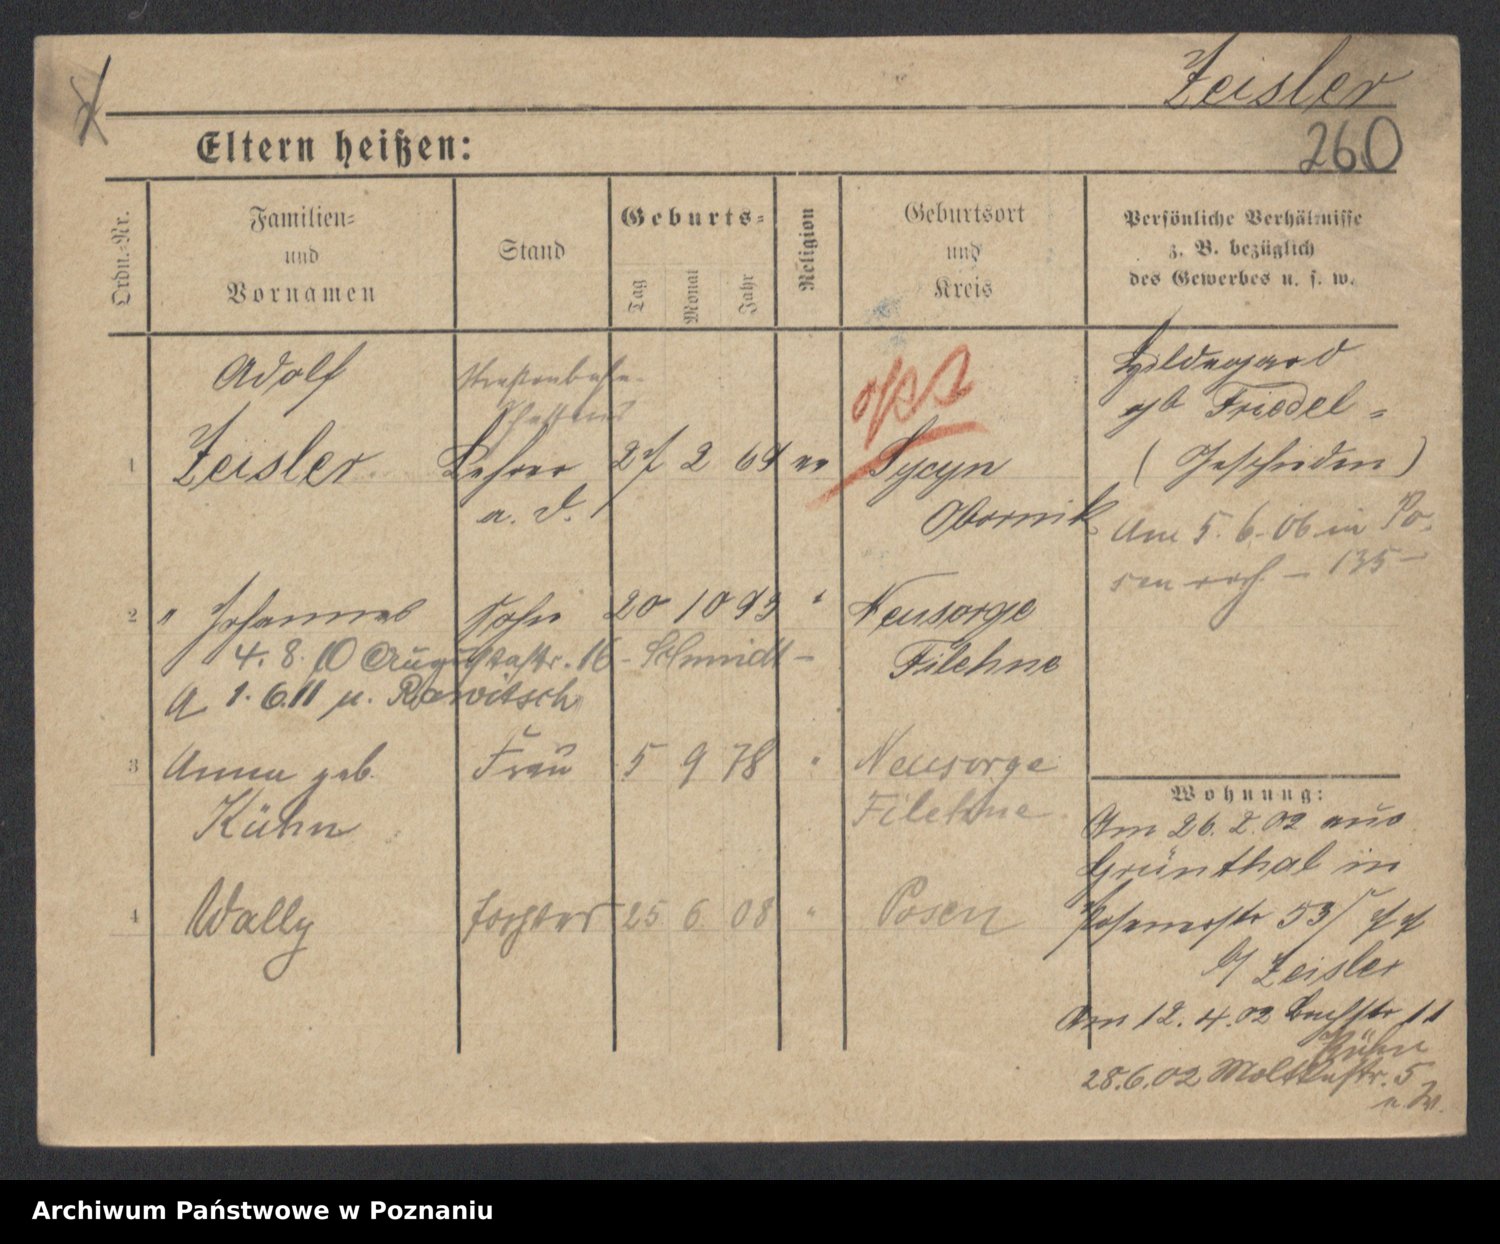 Zeisler
260
Eltern heißen:
Ordn.-Nr.
Familien-
und
Vornamen
Stand
Geburts-
Tag
Monat
Jahr
Religion
Geburtsort
und
Kreis
Persönliche Verhältnisse
z. B. bezüglich
des Gewerbes u. s. w.
1
Adolf
Zeisler
Lehrer
a. D.
27 2 69 ev
Sycyn
Obornik
Hildegard
geb Friedel
(Geschieden)
Am 5. 6. 06 in Po-
sen - 135 -
2
" Johannes
Sohn
20 10 93 "
Neusorge
Filehne
4. 8. 10 Augustastr. 16 - Schmidt -
A 1. 6. 11 n. Rawitsch
3
Anna geb.
Kühn
Frau
5 9 78 "
Neusorge
Filehne
4
Wally
Tochter
25 6 08 "
Posen
Wohnung:
Am 26. 2. 02 aus
Grünthal in
Posenerstr 53
b/ Zeisler
Am 12. 4. 02 Bachstr 11
Kühn
28. 6. 02 Moltkestr. 5
Archiwum Państwowe w Poznaniu